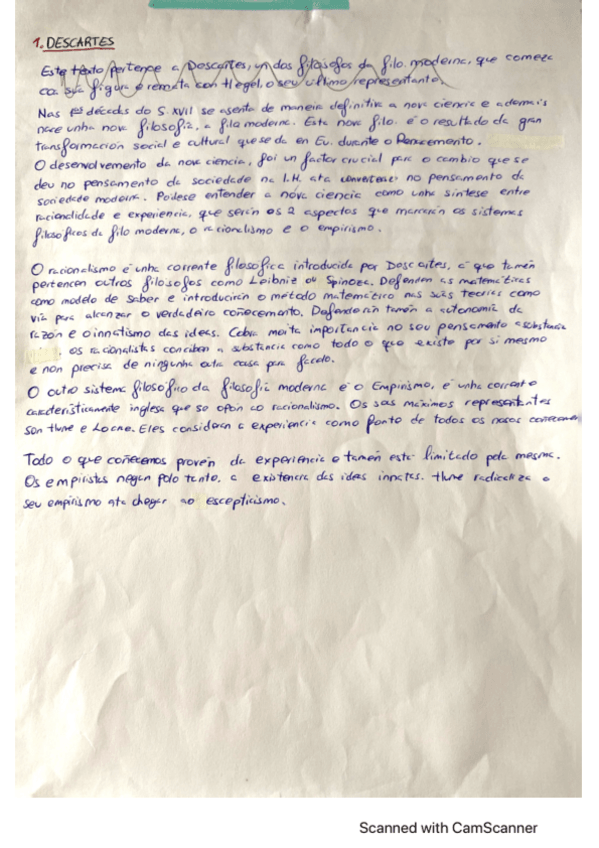 1. DESCARTES
Este texto pertence a Descartes, un dos filósofos da filo. moderna, que comeza
coa súa figura e remata con Hegel, o seu último representante.
Nas 1ªs décadas do S. XVII se asenta de maneira definitiva a nova ciencia e ademais
nace unha nova filosofía, a filo moderna. Esta nova filo. é o resultado da gran
transformación social e cultural que se da en Eu. durante o Renacemento.
O desenvolvemento da nova ciencia, foi un factor crucial para o cambio que se
deu no pensamento da sociedade na I.M. ata converterse no pensamento da
sociedade moderna. Poidese entender a nova ciencia como unha síntese entre
racionalidade e experiencia, que serán os 2 aspectos que marcarán os sistemas
filosóficos da filo moderna, o racionalismo e o empirismo.
O racionalismo é unha corrente filosófica introducida por Descartes, á que tamén
pertencen outros filósofos como Leibniz ou Spinoza. Defenden as matemáticas
como modelo de saber e introducirán o método matemático nas súas teorías como
vía para alcanzar o verdadeiro coñecemento. Defenderán tamén a autonomía da
razón e o innatismo das ideas. Cobra moita importancia no seu pensamento a substancia
, os racionalistas conciben a substancia como todo o que existe por si mesmo
e non precisa de ningunha outra cousa para facelo.
O outro sistema filosófico da filosofía moderna é o Empirismo, é unha corrente
característicamente inglesa que se opón ao racionalismo. Os seus máximos representantes
son Hume e Locke. Eles consideran a experiencia como fonte de todos os nosos
Todo o que coñecemos provén da experiencia e tamén está limitado pola mesma.
Os empiristas negan polo tanto, a existencia das ideas innatas. Hume radicaliza o
seu empirismo ata chegar ao escepticismo.
Scanned with CamScanner